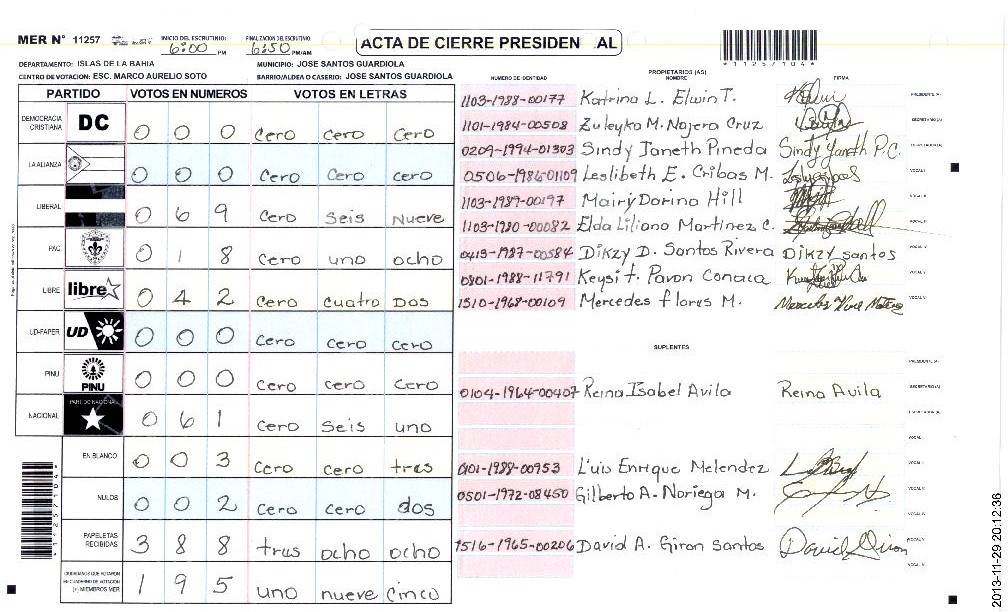 MER N° 11257 INICIO DEL ESCRUTINIO: 6:00 PM FINALIZACION DEL ESCRUTINIO: 6:50 PM/AM ACTA DE CIERRE PRESIDEN AL
*11257104*
DEPARTAMENTO: ISLAS DE LA BAHIA MUNICIPIO: JOSE SANTOS GUARDIOLA
CENTRO DE VOTACION: ESC. MARCO AURELIO SOTO BARRIO/ALDEA O CASERIO: JOSE SANTOS GUARDIOLA
PARTIDO VOTOS EN NUMEROS VOTOS EN LETRAS
DEMOCRACIA CRISTIANA DC 0 0 0 Cero Cero Cero
LA ALIANZA 0 0 0 Cero Cero cero
LIBERAL 0 6 9 Cero Seis Nueve
PAC 0 1 8 Cero uno ocho
LIBRE libre 0 4 2 Cero Cuatro Dos
UD-FAPER UD 0 0 0 Cero cero cero
PINU PINU 0 0 0 Cero cero Cero
NACIONAL PARTIDO NACIONAL 0 6 1 Cero Seis uno
EN BLANCO 0 0 3 Cero cero tres
NULOS 0 0 2 Cero Cero dos
PAPELETAS RECIBIDAS 3 8 8 tres ocho ocho
CIUDADANOS QUE VOTARON EN CUADERNO DE VOTACION (+) MIEMBROS MER 1 9 5 uno nueve Cinco
*11257104*
PROPIETARIOS (AS)
NUMERO DE IDENTIDAD NOMBRE FIRMA
1103-1988-00177 Katrina L. Elwin T. PRESIDENTE (A)
1101-1984-00508 Zuleyka M. Najera Cruz SECRETARIO (A)
0209-1994-01303 Sindy Janeth Pineda Sindy Janeth P.C.
0506-1986-01109 Leslibeth E. Cribas M.
1103-1989-00197 Mairy Darina Hill
1103-1980-00082 Elda Liliana Martinez C.
0413-1987-00584 Dikzy D. Santos Rivera Dikzy santos
0801-1988-11791 Keysi t. Pavon Conaca
1510-1968-00109 Mercedes flores M.
SUPLENTES
PRESIDENTE (A)
0104-1964-00407 Reina Isabel Avila Reina Avila SECRETARIO (A)
0101-1988-00953 Luis Enrique Melendez
0501-1972-08450 Gilberto A. Noriega M.
1516-1965-00206 David A. Giron Santos David Giron
2013-11-29 20:12:36